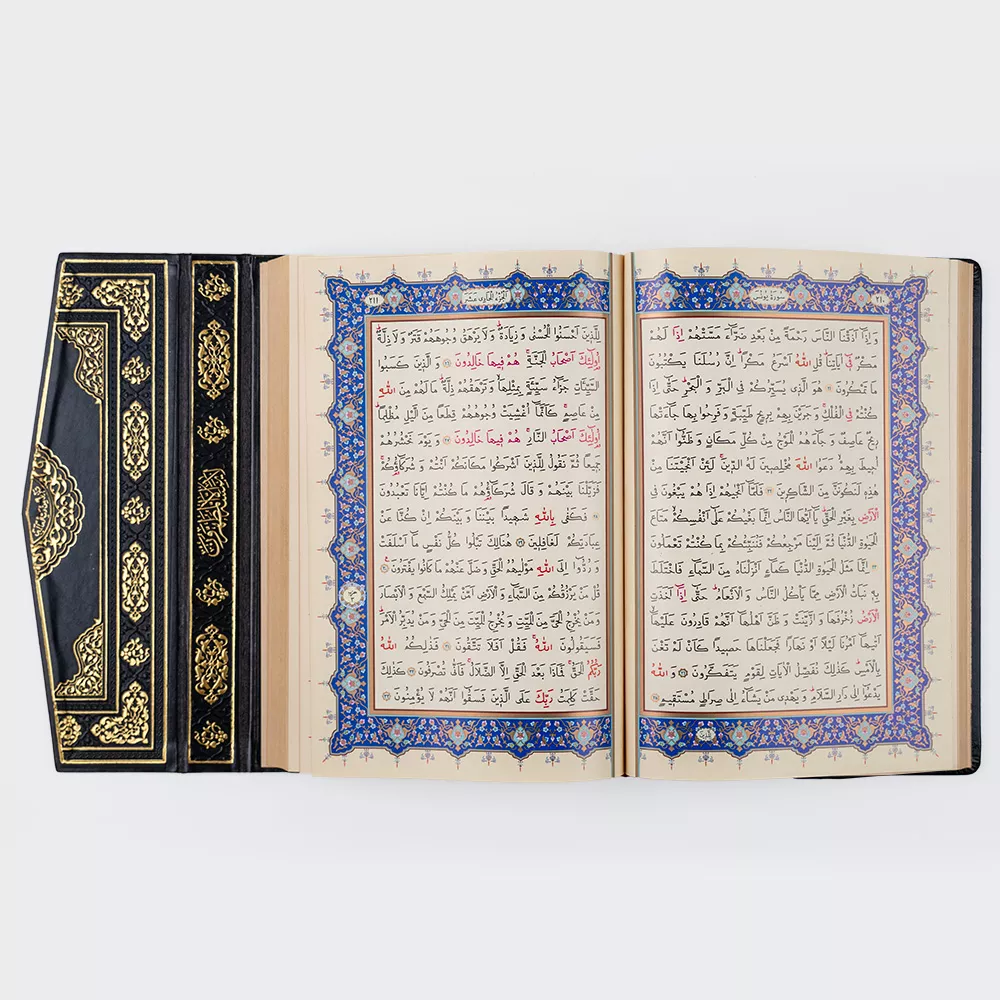 سُورَةُ يُونُسَ
٢١٠
وَاِذَٓا اَذَقْنَا النَّاسَ رَحْمَةً مِنْ بَعْدِ ضَرَّٓاءَ مَسَّتْهُمْ اِذَا لَهُمْ
مَكْرٌ فٖٓي اٰيَاتِنَاۜ قُلِ اللّٰهُ اَسْرَعُ مَكْراًۜ اِنَّ رُسُلَنَا يَكْتُبُونَ
مَا تَمْكُرُونَ ﴿٢١﴾ هُوَ الَّذٖي يُسَيِّرُكُمْ فِي الْبَرِّ وَالْبَحْرِۜ حَتّٰٓى اِذَا
كُنْتُمْ فِي الْفُلْكِۚ وَجَرَيْنَ بِهِمْ بِرٖيحٍ طَيِّبَةٍ وَفَرِحُوا بِهَا جَٓاءَتْهَا
رٖيحٌ عَاصِفٌ وَجَٓاءَهُمُ الْمَوْجُ مِنْ كُلِّ مَكَانٍ وَظَنُّٓوا اَنَّهُمْ
اُحٖيطَ بِهِمْۙ دَعَوُا اللّٰهَ مُخْلِصٖينَ لَهُ الدّٖينَۚ لَئِنْ اَنْجَيْتَنَا مِنْ
هٰذِهٖ لَنَكُونَنَّ مِنَ الشَّاكِرٖينَ ﴿٢٢﴾ فَلَمَّٓا اَنْجٰيهُمْ اِذَا هُمْ يَبْغُونَ فِي
الْاَرْضِ بِغَيْرِ الْحَقِّۜ يَٓا اَيُّهَا النَّاسُ اِنَّمَا بَغْيُكُمْ عَلٰٓى اَنْفُسِكُمْ مَتَاعَ
الْحَيٰوةِ الدُّنْيَا ثُمَّ اِلَيْنَا مَرْجِعُكُمْ فَنُنَبِّئُكُمْ بِمَا كُنْتُمْ تَعْمَلُونَ
﴿٢٣﴾ اِنَّمَا مَثَلُ الْحَيٰوةِ الدُّنْيَا كَمَٓاءٍ اَنْزَلْنَاهُ مِنَ السَّمَٓاءِ فَاخْتَلَطَ
بِهٖ نَبَاتُ الْاَرْضِ مِمَّا يَأْكُلُ النَّاسُ وَالْاَنْعَامُۜ حَتّٰٓى اِذَٓا اَخَذَتِ
الْاَرْضُ زُخْرُفَهَا وَازَّيَّنَتْ وَظَنَّ اَهْلُهَٓا اَنَّهُمْ قَادِرُونَ عَلَيْهَٓاۙ
اَتٰيهَٓا اَمْرُنَا لَيْلاً اَوْ نَهَاراً فَجَعَلْنَاهَا حَصٖيداً كَاَنْ لَمْ تَغْنَ
بِالْاَمْسِۜ كَذٰلِكَ نُفَصِّلُ الْاٰيَاتِ لِقَوْمٍ يَتَفَكَّرُونَ ﴿٢٤﴾ وَاللّٰهُ
يَدْعُٓوا اِلٰى دَارِ السَّلَامِۜ وَيَهْدٖي مَنْ يَشَٓاءُ اِلٰى صِرَاطٍ مُسْتَقٖيمٍ ﴿٢٥﴾
اَلْجُزْءُ الْحَادٖى عَشَرَ
٢١١
لِلَّذٖينَ اَحْسَنُوا الْحُسْنٰى وَزِيَادَةٌۜ وَلَا يَرْهَقُ وُجُوهَهُمْ قَتَرٌ وَلَا ذِلَّةٌۜ
اُو۬لٰٓئِكَ اَصْحَابُ الْجَنَّةِۚ هُمْ فٖيهَا خَالِدُونَ ﴿٢٦﴾ وَالَّذٖينَ كَسَبُوا
السَّيِّـَٔاتِ جَزَٓاءُ سَيِّئَةٍ بِمِثْلِهَاۙ وَتَرْهَقُهُمْ ذِلَّةٌۜ مَا لَهُمْ مِنَ اللّٰهِ
مِنْ عَاصِمٍۚ كَاَنَّمَٓا اُغْشِيَتْ وُجُوهُهُمْ قِطَعاً مِنَ الَّيْلِ مُظْلِماًۜ
اُو۬لٰٓئِكَ اَصْحَابُ النَّارِۚ هُمْ فٖيهَا خَالِدُونَ ﴿٢٧﴾ وَيَوْمَ نَحْشُرُهُمْ
جَمٖيعاً ثُمَّ نَقُولُ لِلَّذٖينَ اَشْرَكُوا مَكَانَكُمْ اَنْتُمْ وَشُرَكَٓاؤُ۬كُمْۚ
فَزَيَّلْنَا بَيْنَهُمْ وَقَالَ شُرَكَٓاؤُ۬هُمْ مَا كُنْتُمْ اِيَّانَا تَعْبُدُونَ
﴿٢٨﴾ فَكَفٰى بِاللّٰهِ شَهٖيداً بَيْنَنَا وَبَيْنَكُمْ اِنْ كُنَّا عَنْ
عِبَادَتِكُمْ لَغَافِلٖينَ ﴿٢٩﴾ هُنَالِكَ تَبْلُوا كُلُّ نَفْسٍ مَٓا اَسْلَفَتْ
وَرُدُّٓوا اِلَى اللّٰهِ مَوْلٰيهُمُ الْحَقِّ وَضَلَّ عَنْهُمْ مَا كَانُوا يَفْتَرُونَ ﴿٣٠﴾
قُلْ مَنْ يَرْزُقُكُمْ مِنَ السَّمَٓاءِ وَالْاَرْضِ اَمَّنْ يَمْلِكُ السَّمْعَ وَالْاَبْصَارَ
وَمَنْ يُخْرِجُ الْحَيَّ مِنَ الْمَيِّتِ وَيُخْرِجُ الْمَيِّتَ مِنَ الْحَيِّ وَمَنْ يُدَبِّرُ الْاَمْرَۜ
فَسَيَقُولُونَ اللّٰهُۚ فَقُلْ اَفَلَا تَتَّقُونَ ﴿٣١﴾ فَذٰلِكُمُ اللّٰهُ
رَبُّكُمُ الْحَقُّۚ فَمَاذَا بَعْدَ الْحَقِّ اِلَّا الضَّلَالُۚ فَاَنّٰى تُصْرَفُونَ ﴿٣٢﴾ كَذٰلِكَ
حَقَّتْ كَلِمَتُ رَبِّكَ عَلَى الَّذٖينَ فَسَقُٓوا اَنَّهُمْ لَا يُؤْمِنُونَ ﴿٣٣﴾